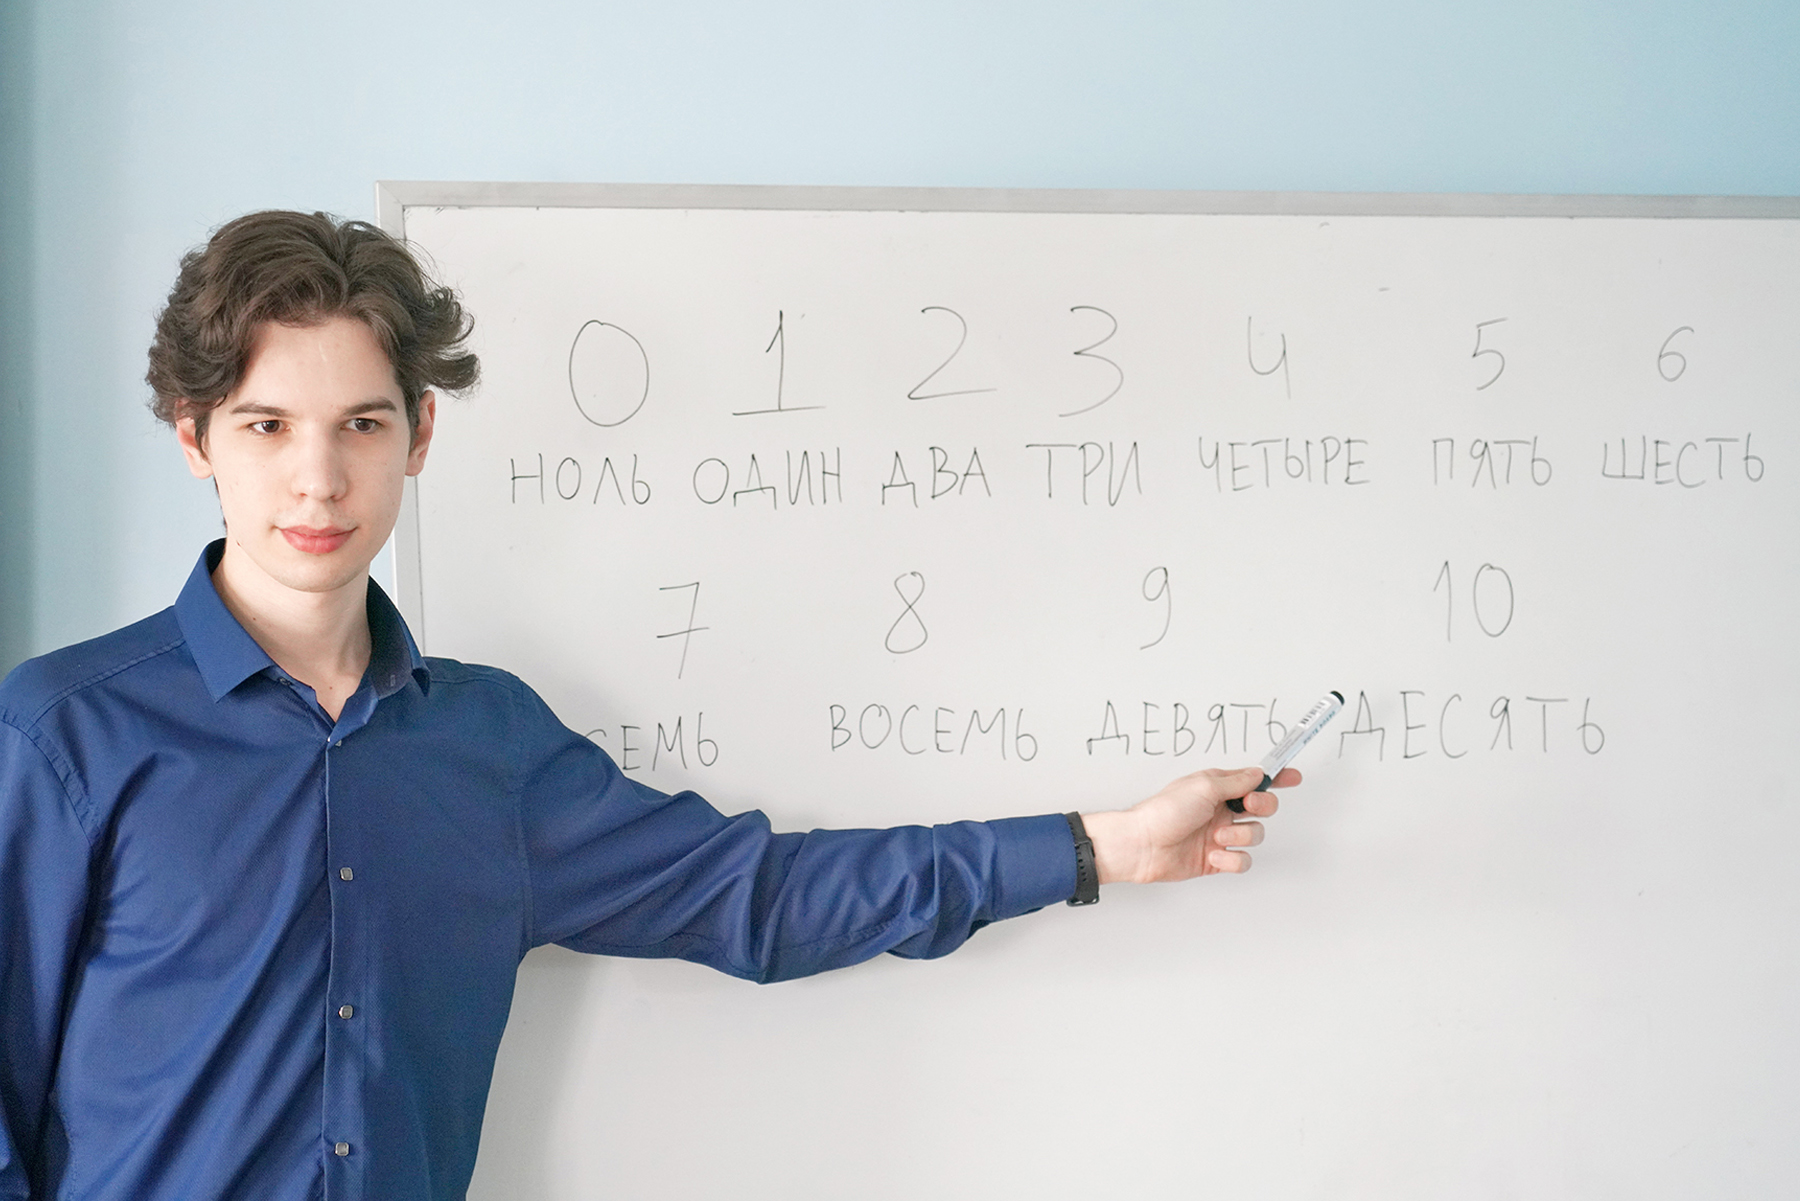 0 1 2 3 4 5 6
НОЛЬ ОДИН ДВА ТРИ ЧЕТЫРЕ ПЯТЬ ШЕСТЬ
7 8 9 10
СЕМЬ ВОСЕМЬ ДЕВЯТЬ ДЕСЯТЬ